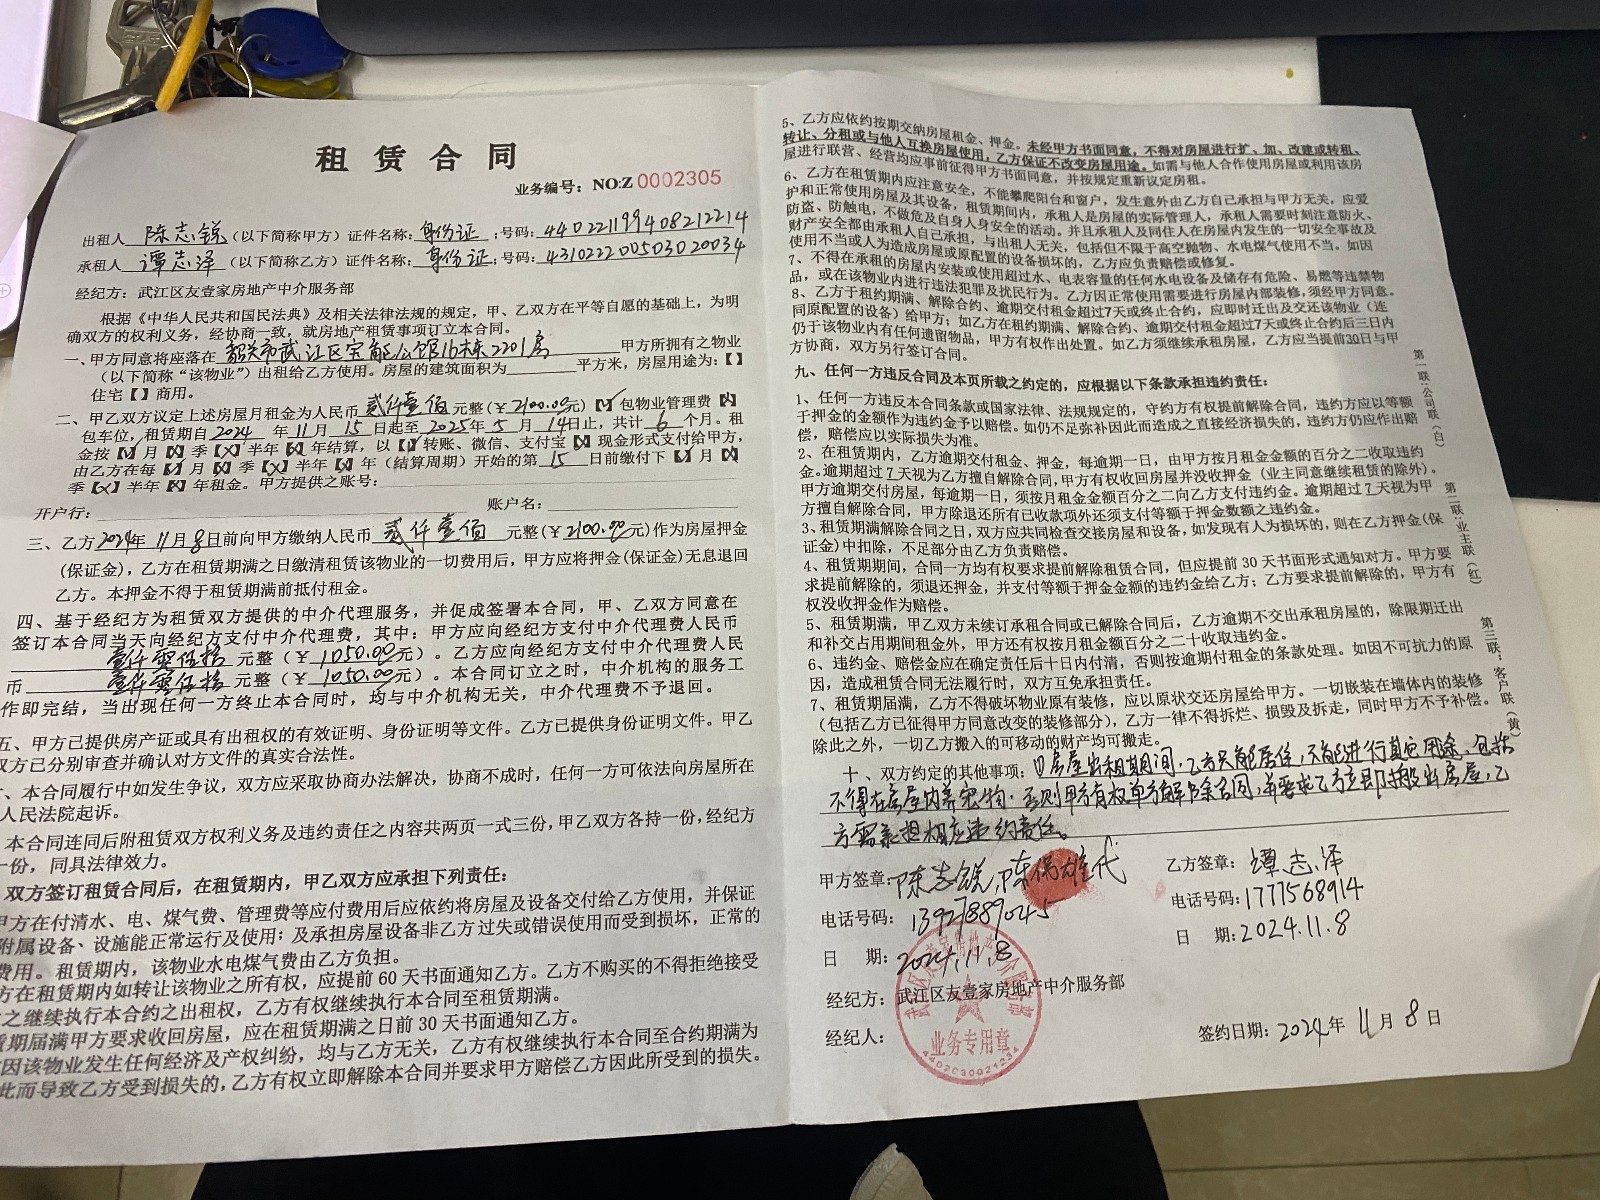 租赁合同
业务编号：NO:Z 0002305
出租人 陈志锐（以下简称甲方）证件名称：身份证；号码：440221199408212214
承租人 谭志泽（以下简称乙方）证件名称：身份证；号码：431022200503020034
经纪方：武江区友壹家房地产中介服务部
根据《中华人民共和国民法典》及相关法律法规的规定，甲、乙双方在平等自愿的基础上，为明
确双方的权利义务，经协商一致，就房地产租赁事项订立本合同。
一、甲方同意将座落在 韶关市武江区宝能公馆16栋2201房 甲方所拥有之物业
（以下简称“该物业”）出租给乙方使用。房屋的建筑面积为 平方米，房屋用途为：【】
住宅【】商用。
二、甲乙双方议定上述房屋月租金为人民币 贰仟壹佰 元整（￥2100.00元）【✓】包物业管理费【✗】
包车位，租赁期自 2024 年 11 月 15 日起至 2025 年 5 月 14 日止，共计 6 个月。租
金按【✓】月【✗】季【✗】半年【✗】年结算，以【✓】转账、微信、支付宝【✗】现金形式支付给甲方，
由乙方在每【✓】月【✗】季【✗】半年【✗】年（结算周期）开始的第 15 日前缴付下【✓】月【✗】
季【✗】半年【✗】年租金。甲方提供之账号：
开户行： 账户名：
三、乙方 2024年 11月 8日前向甲方缴纳人民币 贰仟壹佰 元整（￥2100.00元）作为房屋押金
（保证金），乙方在租赁期满之日缴清租赁该物业的一切费用后，甲方应将押金（保证金）无息退回
乙方。本押金不得于租赁期满前抵付租金。
四、基于经纪方为租赁双方提供的中介代理服务，并促成签署本合同，甲、乙双方同意在
签订本合同当天向经纪方支付中介代理费，其中：甲方应向经纪方支付中介代理费人民币
壹仟零伍拾 元整（￥1050.00元）。乙方应向经纪方支付中介代理费人民
币 壹仟零伍拾 元整（￥1050.00元）。本合同订立之时，中介机构的服务工
作即完结，当出现任何一方终止本合同时，均与中介机构无关，中介代理费不予退回。
五、甲方已提供房产证或具有出租权的有效证明、身份证明等文件。乙方已提供身份证明文件。甲乙
双方已分别审查并确认对方文件的真实合法性。
、本合同履行中如发生争议，双方应采取协商办法解决，协商不成时，任何一方可依法向房屋所在
人民法院起诉。
本合同连同后附租赁双方权利义务及违约责任之内容共两页一式三份，甲乙双方各持一份，经纪方
一份，同具法律效力。
双方签订租赁合同后，在租赁期内，甲乙双方应承担下列责任：
甲方在付清水、电、煤气费、管理费等应付费用后应依约将房屋及设备交付给乙方使用，并保证
附属设备、设施能正常运行及使用；及承担房屋设备非乙方过失或错误使用而受到损坏，正常的
费用。租赁期内，该物业水电煤气费由乙方负担。
方在租赁期内如转让该物业之所有权，应提前60天书面通知乙方。乙方不购买的不得拒绝接受
之继续执行本合约之出租权，乙方有权继续执行本合同至租赁期满。
赁期届满甲方要求收回房屋，应在租赁期满之日前30天书面通知乙方。
因该物业发生任何经济及产权纠纷，均与乙方无关，乙方有权继续执行本合同至合约期满为
此而导致乙方受到损失的，乙方有权立即解除本合同并要求甲方赔偿乙方因此所受到的损失。
5、乙方应依约按期交纳房屋租金、押金。未经甲方书面同意，不得对房屋进行扩、加、改建或转租、
转让、分租或与他人互换房屋使用，乙方保证不改变房屋用途。如需与他人合作使用房屋或利用该房
屋进行联营、经营均应事前征得甲方书面同意，并按规定重新议定房租。
6、乙方在租赁期内应注意安全，不能攀爬阳台和窗户，发生意外由乙方自己承担与甲方无关，应爱
护和正常使用房屋及其设备，租赁期间内，承租人是房屋的实际管理人，承租人需要时刻注意防火、
防盗、防触电，不做危及自身人身安全的活动。并且承租人及同住人在房屋内发生的一切安全事故及
财产安全都由承租人自己承担，与出租人无关，包括但不限于高空抛物、水电煤气使用不当。如因
使用不当或人为造成房屋或原配置的设备损坏的，乙方应负责赔偿或修复。
7、不得在承租的房屋内安装或使用超过水、电表容量的任何水电设备及储存有危险、易燃等违禁物
品，或在该物业内进行违法犯罪及扰民行为。乙方因正常使用需要进行房屋内部装修，须经甲方同意。
8、乙方于租约期满、解除合约、逾期交付租金超过7天或终止合约，应即时迁出及交还该物业（连
同原配置的设备）给甲方；如乙方在租约期满、解除合约、逾期交付租金超过7天或终止合约后三日内
仍于该物业内有任何遗留物品，甲方有权作出处置。如乙方须继续承租房屋，乙方应当提前30日与甲
方协商，双方另行签订合同。
九、任何一方违反合同及本页所载之约定的，应根据以下条款承担违约责任：
1、任何一方违反本合同条款或国家法律、法规规定的，守约方有权提前解除合同，违约方应以等额
于押金的金额作为违约金予以赔偿。如仍不足弥补因此而造成之直接经济损失的，违约方仍应作出赔
偿，赔偿应以实际损失为准。
2、在租赁期内，乙方逾期交付租金、押金，每逾期一日，由甲方按月租金金额的百分之二收取违约
金。逾期超过7天视为乙方擅自解除合同，甲方有权收回房屋并没收押金（业主同意继续租赁的除外）。
甲方逾期交付房屋，每逾期一日，须按月租金金额百分之二向乙方支付违约金。逾期超过7天视为甲
方擅自解除合同，甲方除退还所有已收款项外还须支付等额于押金数额之违约金。
3、租赁期满解除合同之日，双方应共同检查交接房屋和设备，如发现有人为损坏的，则在乙方押金（保
证金）中扣除，不足部分由乙方负责赔偿。
4、租赁期期间，合同一方均有权要求提前解除租赁合同，但应提前30天书面形式通知对方。甲方要
求提前解除的，须退还押金，并支付等额于押金金额的违约金给乙方；乙方要求提前解除的，甲方有
权没收押金作为赔偿。
5、租赁期满，甲乙双方未续订承租合同或已解除合同后，乙方逾期不交出承租房屋的，除限期迁出
和补交占用期间租金外，甲方还有权按月租金额百分之二十收取违约金。
6、违约金、赔偿金应在确定责任后十日内付清，否则按逾期付租金的条款处理。如因不可抗力的原
因，造成租赁合同无法履行时，双方互免承担责任。
7、租赁期届满，乙方不得破坏物业原有装修，应以原状交还房屋给甲方。一切嵌装在墙体内的装修
（包括乙方已征得甲方同意改变的装修部分），乙方一律不得拆烂、损毁及拆走，同时甲方不予补偿。
除此之外，一切乙方搬入的可移动的财产均可搬走。
十、双方约定的其他事项：①房屋出租期间，乙方只能居住，不能进行其它用途，包括
不得在房屋内养宠物。否则甲方有权单方解除合同，并要求乙方立即搬出房屋，乙
方需承担相应违约责任。
甲方签章：陈志锐，陈保雄代
电话号码：13927889045
日 期：2024.11.8
经纪方：武江区友壹家房地产中介服务部
经纪人：
乙方签章：谭志泽
电话号码：1777568914
日 期：2024.11.8
签约日期：2024年 11月 8日
武江区友壹家房地产中介服务部
业务专用章
4402030021234
第一联：公司联（白）
第二联：业主联（红）
第三联：客户联（黄）